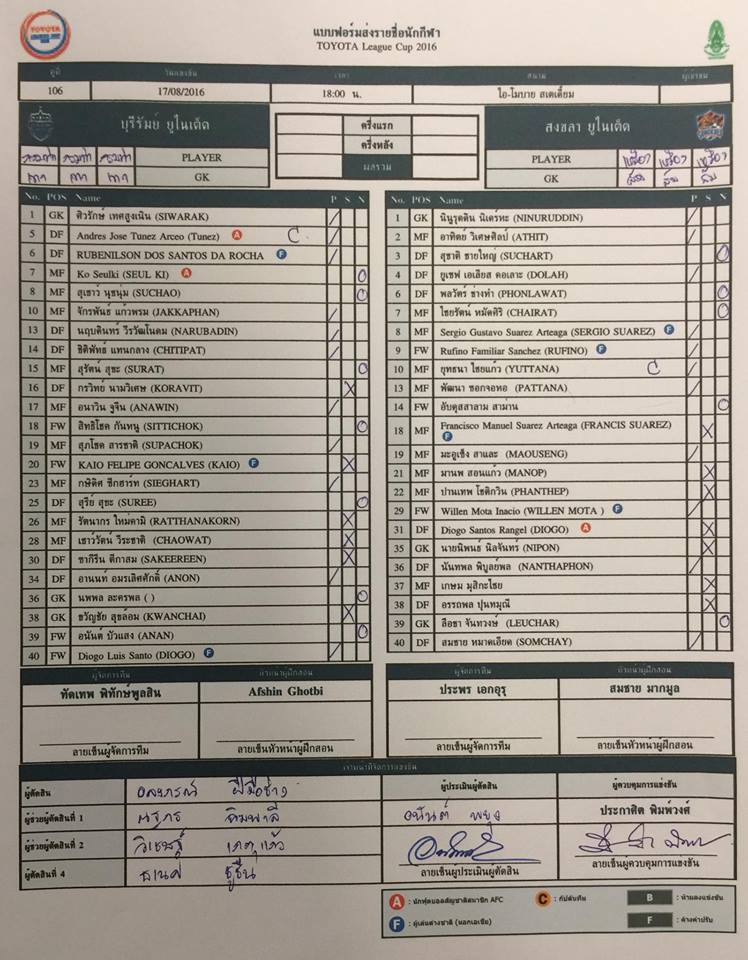 TOYOTA
แบบฟอร์มส่งรายชื่อนักกีฬา
TOYOTA League Cup 2016
คู่ที่ วันแข่งขัน เวลา สนาม ผู้เข้าชม
106 17/08/2016 18:00 น. ไอ-โมบาย สเตเดี้ยม
บุรีรัมย์ ยูไนเต็ด ครึ่งแรก สงขลา ยูไนเต็ด
ครึ่งหลัง
ผลรวม
กรมท่า กรมท่า กรมท่า PLAYER PLAYER เหลือง เหลือง เหลือง
เทา เทา เทา GK GK ส้ม ส้ม ส้ม
No. POS Name P S N
1 GK ศิวรักษ์ เทศสูงเนิน (SIWARAK) /
5 DF Andres Jose Tunez Arceo (Tunez) A C /
6 DF RUBENILSON DOS SANTOS DA ROCHA F /
7 MF Ko Seulki (SEUL KI) A O
8 MF สุเชาว์ นุชนุ่ม (SUCHAO) O
10 MF จักรพันธ์ แก้วพรม (JAKKAPHAN) /
13 DF นฤบดินทร์ วีรวัฒโนดม (NARUBADIN) /
14 DF ชิติพัทธ์ แทนกลาง (CHITIPAT) /
15 MF สุรัตน์ สุขะ (SURAT) O
16 DF กรวิทย์ นามวิเศษ (KORAVIT) X
17 MF อนาวิน จูจีน (ANAWIN) /
18 FW สิทธิโชค กันหนู (SITTICHOK) O
19 MF สุภโชค สารชาติ (SUPACHOK) /
20 FW KAIO FELIPE GONCALVES (KAIO) F X
23 MF กษิดิศ ซีกฮาร์ท (SIEGHART) /
25 DF สุรีย์ สุขะ (SUREE) O
26 MF รัตนากร ใหม่คามิ (RATTHANAKORN) X
28 MF เชาว์วัตน์ วีระชาติ (CHAOWAT) X
30 DF ซากีรีน ตีกาสม (SAKEEREEN) X
34 DF อานนท์ อมรเลิศศักดิ์ (ANON) /
36 GK นพพล ละครพล ( ) O
38 GK ขวัญชัย สุขล้อม (KWANCHAI) X
39 FW อนันต์ บัวแสง (ANAN) O
40 FW Diogo Luis Santo (DIOGO) F /
No. POS Name P S N
1 GK นินูรุดดิน นิเดร์หะ (NINURUDDIN) /
2 MF อาทิตย์ วิเศษศิลป์ (ATHIT) /
3 DF สุชาติ ชายใหญ่ (SUCHART) O
4 DF ยูเซฟ เอเลียส ดอเลาะ (DOLAH) /
6 DF พลวัตร์ ช่างทำ (PHONLAWAT) O
7 MF ไชยรัตน์ หมัดศิริ (CHAIRAT) O
8 MF Sergio Gustavo Suarez Arteaga (SERGIO SUAREZ) F /
9 FW Rufino Familiar Sanchez (RUFINO) F /
10 MF ยุทธนา ไชยแก้ว (YUTTANA) C /
13 MF พัฒนา ซอกจอหอ (PATTANA) /
14 FW อับดุสสาลาม สาม่าน O
18 MF Francisco Manuel Suarez Arteaga (FRANCIS SUAREZ) F X
19 MF มะอูเซ็ง สาและ (MAOUSENG) /
21 MF มานพ สอนแก้ว (MANOP) X
22 MF ปานเทพ โชติกวิน (PHANTHEP) X
29 FW Willen Mota Inacio (WILLEN MOTA ) F /
31 DF Diogo Santos Rangel (DIOGO) A X
35 GK นายนิพนธ์ นิลจันทร์ (NIPON) X
36 DF นันทพล พิบูลย์พล (NANTHAPHON) /
37 MF เกษม มุสิกะไชย X
38 DF อรรถพล ปุนหมุณี X
39 GK ลือชา จันทวงษ์ (LEUCHAR) O
40 DF สมชาย หมาดเอียด (SOMCHAY) /
ผู้จัดการทีม หัวหน้าผู้ฝึกสอน ผู้จัดการทีม หัวหน้าผู้ฝึกสอน
ทัดเทพ พิทักษ์พูลสิน Afshin Ghotbi ประพร เอกอุรุ สมชาย มากมูล
ลายเซ็นผู้จัดการทีม ลายเซ็นหัวหน้าผู้ฝึกสอน ลายเซ็นผู้จัดการทีม ลายเซ็นหัวหน้าผู้ฝึกสอน
เจ้าหน้าที่จัดการแข่งขัน
ผู้ตัดสิน ฝีมือช่าง ผู้ประเมินผู้ตัดสิน ผู้ควบคุมการแข่งขัน
ผู้ช่วยผู้ตัดสินที่ 1 ประกาศิต พิมพ์วงศ์
ผู้ช่วยผู้ตัดสินที่ 2 วิเชษฐ์
ผู้ตัดสินที่ 4 ธเนศ ชูชื่น ลายเซ็นผู้ประเมินผู้ตัดสิน ลายเซ็นผู้ควบคุมการแข่งขัน
A : นักฟุตบอลสัญชาติสมาชิก AFC C : กัปตันทีม B : ห้ามลงแข่งขัน
F : ผู้เล่นต่างชาติ (นอกเอเชีย) F : ค้างค่าปรับ